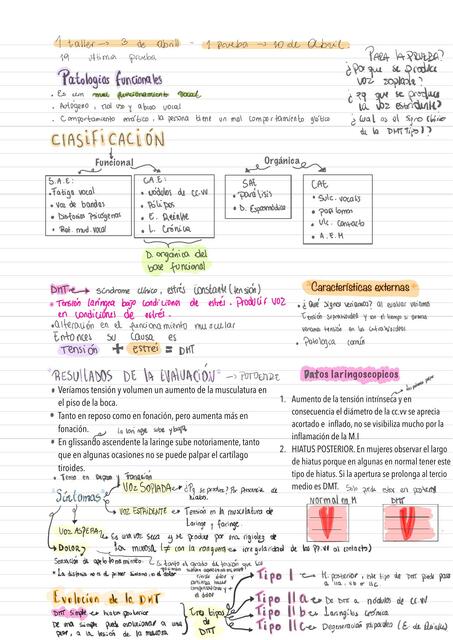 1 taller → 3 de abril - 1 prueba → 10 de abril.
19 ultima prueba
PARA LA PRUEBA?
¿Por que se produce
voz soplada?
¿Por que se produce
la voz estridente?
¿Cual es el signo clínico
de la DMT Tipo I?
Patologías funcionales
• Es un mal funcionamiento vocal
• Autógeno, mal uso y abuso vocal
• Comportamiento errático, la persona tiene un mal comportamiento glótico
CLASIFICACIÓN
Funcional
Orgánica
S.A.E:
• Fatiga vocal
• Voz de bandas
• Disfonías Psicógenas
• Ret. mud. vocal
C.A.E:
• nódulos de cc.vv
• Pólipos
• E. Reinke
• L. Crónica
SAE
• Parálisis
• D. Espasmódica
CAE
• Sulc. vocalis
• papilomas
• Ulc. contacto
• A.E.M
D. orgánica del
base funcional
DMT → síndrome clásico, estrés constante (tensión)
• Tensión laríngea bajo condiciones de estrés. Producir voz
en condiciones de estrés.
• Alteración en el funcionamiento muscular
Entonces su causa es
Tensión + estrés = DMT
Características externas
• ¿Qué signos veríamos? Al evaluar veríamos
• Patología común
RESULTADOS DE LA EVALUACIÓN
• Veríamos tensión y volumen un aumento de la musculatura en
el piso de la boca.
• Tanto en reposo como en fonación, pero aumenta más en
fonación.
la laringe sube y baja
• En glissando ascendente la laringe sube notoriamente, tanto
que en algunas ocasiones no se puede palpar el cartílago
tiroides.
Datos laringoscopicos
1. Aumento de la tensión intrínseca y en
consecuencia el diámetro de la cc.vv se aprecia
acortado e inflado, no se visibiliza mucho por la
inflamación de la M.I
2. HIATUS POSTERIOR. En mujeres observar el largo
de hiatus porque en algunas en normal tener este
tipo de hiatus. Si la apertura se prolonga al tercio
medio es DMT.
Normal en M
DMT
Síntomas
VOZ SOPLADA → ¿Pq se produce? Por presencia de
hiatus.
VOZ ESTRIDENTE → Tensión en la musculatura de
laringe y faringe.
VOZ ASPERA → Es una voz seca y se produce por una rigidez de
la mucosa (≠ con la ronquera → irregularidad de los PP.VV al contacto)
DOLOR
Sensación de apretamiento
Evolucion de la DMT
DMT Simple → hiatus posterior
De una simple puede evolucionar a una
peor, a la lesión de la mucosa
Tres tipos de
DMT
Tipo I → H. posterior, este tipo de DMT puede pasar
a IIa, IIb o IIc
Tipo IIa → De DMT a nódulos de cc.vv
Tipo IIb → Laringitis crónica
Tipo IIc → Degeneración papoidea (E. de Reinke)